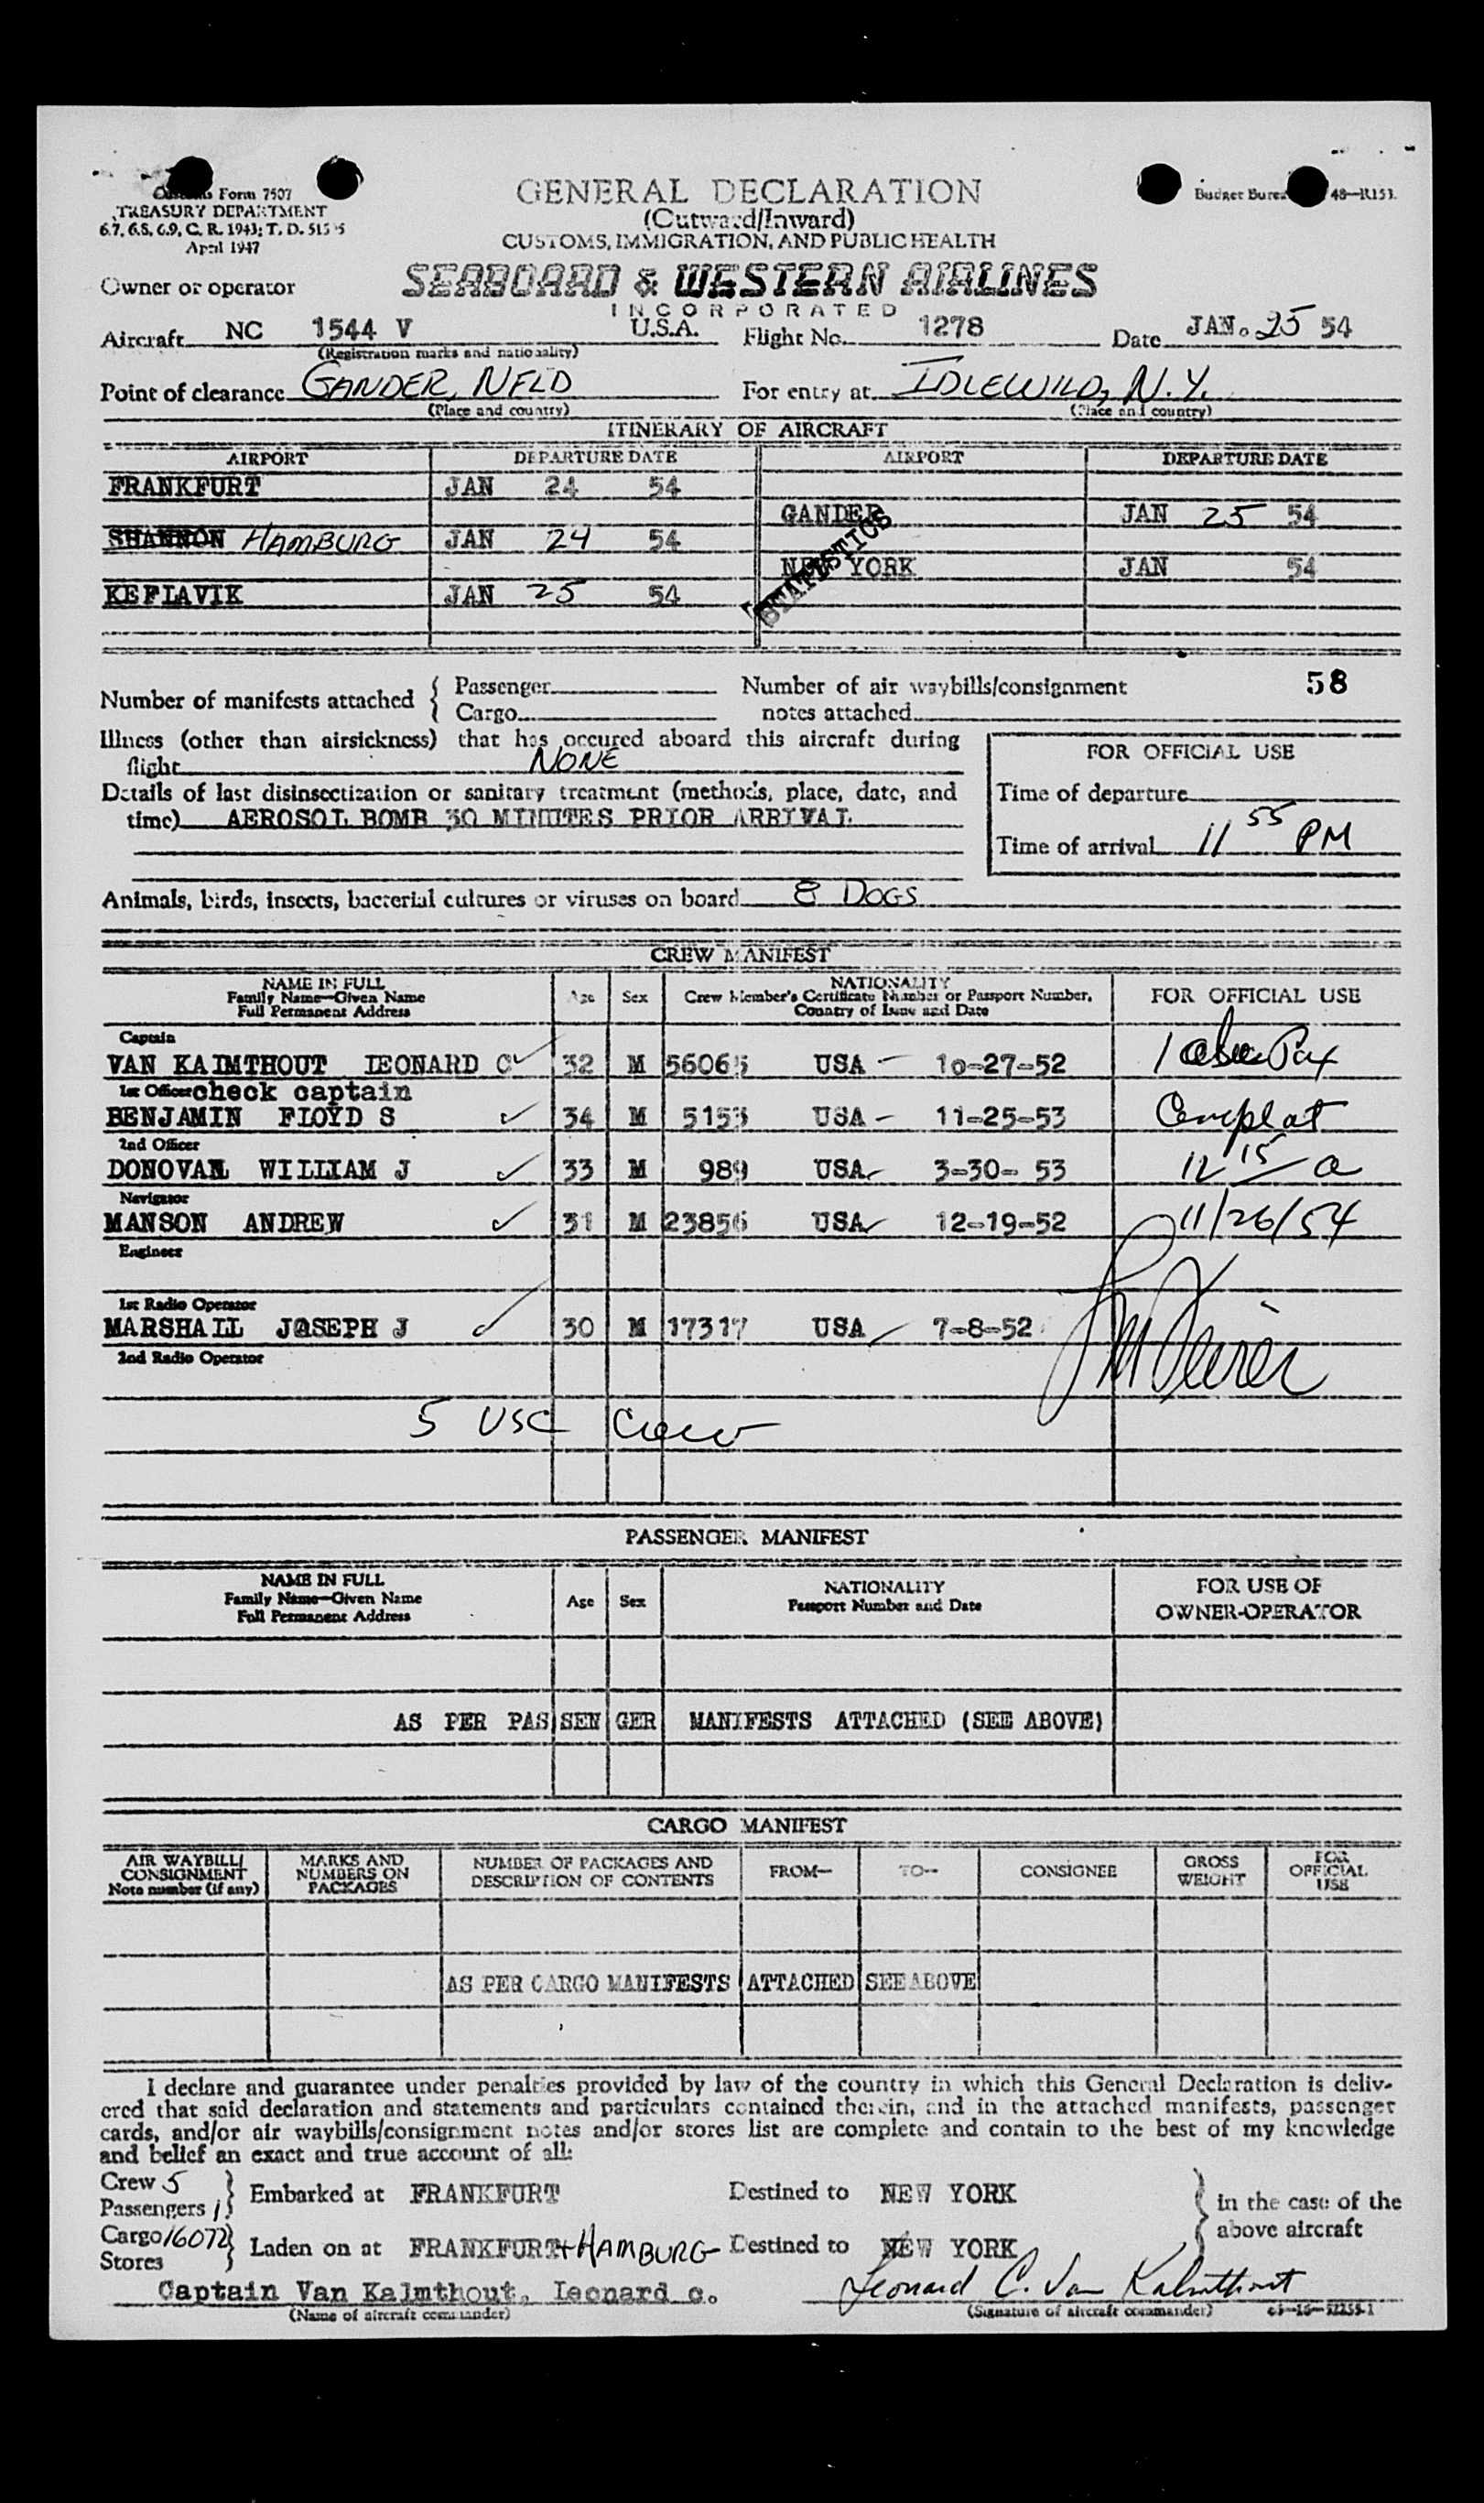 Form 7507
TREASURY DEPARTMENT
6.7, 6.8, 6.9, C. R. 1943; T. D. 515
April 1947
GENERAL DECLARATION
(Outward/Inward)
CUSTOMS, IMMIGRATION, AND PUBLIC HEALTH
Budget 48—R153.
Owner or operator SEABOARD & WESTERN AIRLINES
INCORPORATED
Aircraft NC 1544 V U.S.A. Flight No. 1278 Date JAN. 25 54
(Registration marks and nationality)
Point of clearance GANDER, NFLD For entry at IDLEWILD, N.Y.
(Place and country) (Place and country)
ITINERARY OF AIRCRAFT
AIRPORT DEPARTURE DATE AIRPORT DEPARTURE DATE
FRANKFURT JAN 24 54
GANDER JAN 25 54
SHANNON HAMBURG JAN 24 54
NEW YORK JAN 54
STATISTICS
KEFLAVIK JAN 25 54
Number of manifests attached { Passenger
Cargo
Number of air waybills/consignment
notes attached
58
Illness (other than airsickness) that has occured aboard this aircraft during
flight NONE
Details of last disinsectization or sanitary treatment (methods, place, date, and
time) AEROSOL BOMB 30 MINUTES PRIOR ARRIVAL
FOR OFFICIAL USE
Time of departure
Time of arrival 11 55 PM
Animals, birds, insects, bacterial cultures or viruses on board 8 DOGS
CREW MANIFEST
NAME IN FULL
Family Name—Given Name
Full Permanent Address
Age
Sex
NATIONALITY
Crew Member's Certificate Number or Passport Number,
Country of Issue and Date
FOR OFFICIAL USE
Captain
VAN KAIMTHOUT LEONARD C 32 M 56065 USA 10-27-52
1st Officer check captain
BENJAMIN FLOYD S 34 M 5153 USA 11-25-53
2nd Officer
DONOVAN WILLIAM J 33 M 989 USA 3-30-53 12 15 a
Navigator
MANSON ANDREW 31 M 23856 USA 12-19-52 11/26/54
Engineer
1st Radio Operator
MARSHALL JOSEPH J 30 M 17317 USA 7-8-52
2nd Radio Operator
5 USC Crew
PASSENGER MANIFEST
NAME IN FULL
Family Name—Given Name
Full Permanent Address
Age
Sex
NATIONALITY
Passport Number and Date
FOR USE OF
OWNER-OPERATOR
AS PER PASSENGER MANIFESTS ATTACHED (SEE ABOVE)
CARGO MANIFEST
AIR WAYBILL/
CONSIGNMENT
Note number (if any)
MARKS AND
NUMBERS ON
PACKAGES
NUMBER OF PACKAGES AND
DESCRIPTION OF CONTENTS
FROM—
TO—
CONSIGNEE
GROSS
WEIGHT
FOR
OFFICIAL
USE
AS PER CARGO MANIFESTS ATTACHED SEE ABOVE
I declare and guarantee under penalties provided by law of the country in which this General Declaration is deliv-
ered that said declaration and statements and particulars contained therein, and in the attached manifests, passenger
cards, and/or air waybills/consignment notes and/or stores list are complete and contain to the best of my knowledge
and belief an exact and true account of all:
Crew 5
Passengers 1
} Embarked at FRANKFURT Destined to NEW YORK
Cargo 16072
Stores
} Laden on at FRANKFURT + HAMBURG Destined to NEW YORK
} in the case of the
above aircraft
Captain Van Kalmthout, Leonard c. Leonard C. Van Kalmthout
(Name of aircraft commander) (Signature of aircraft commander)